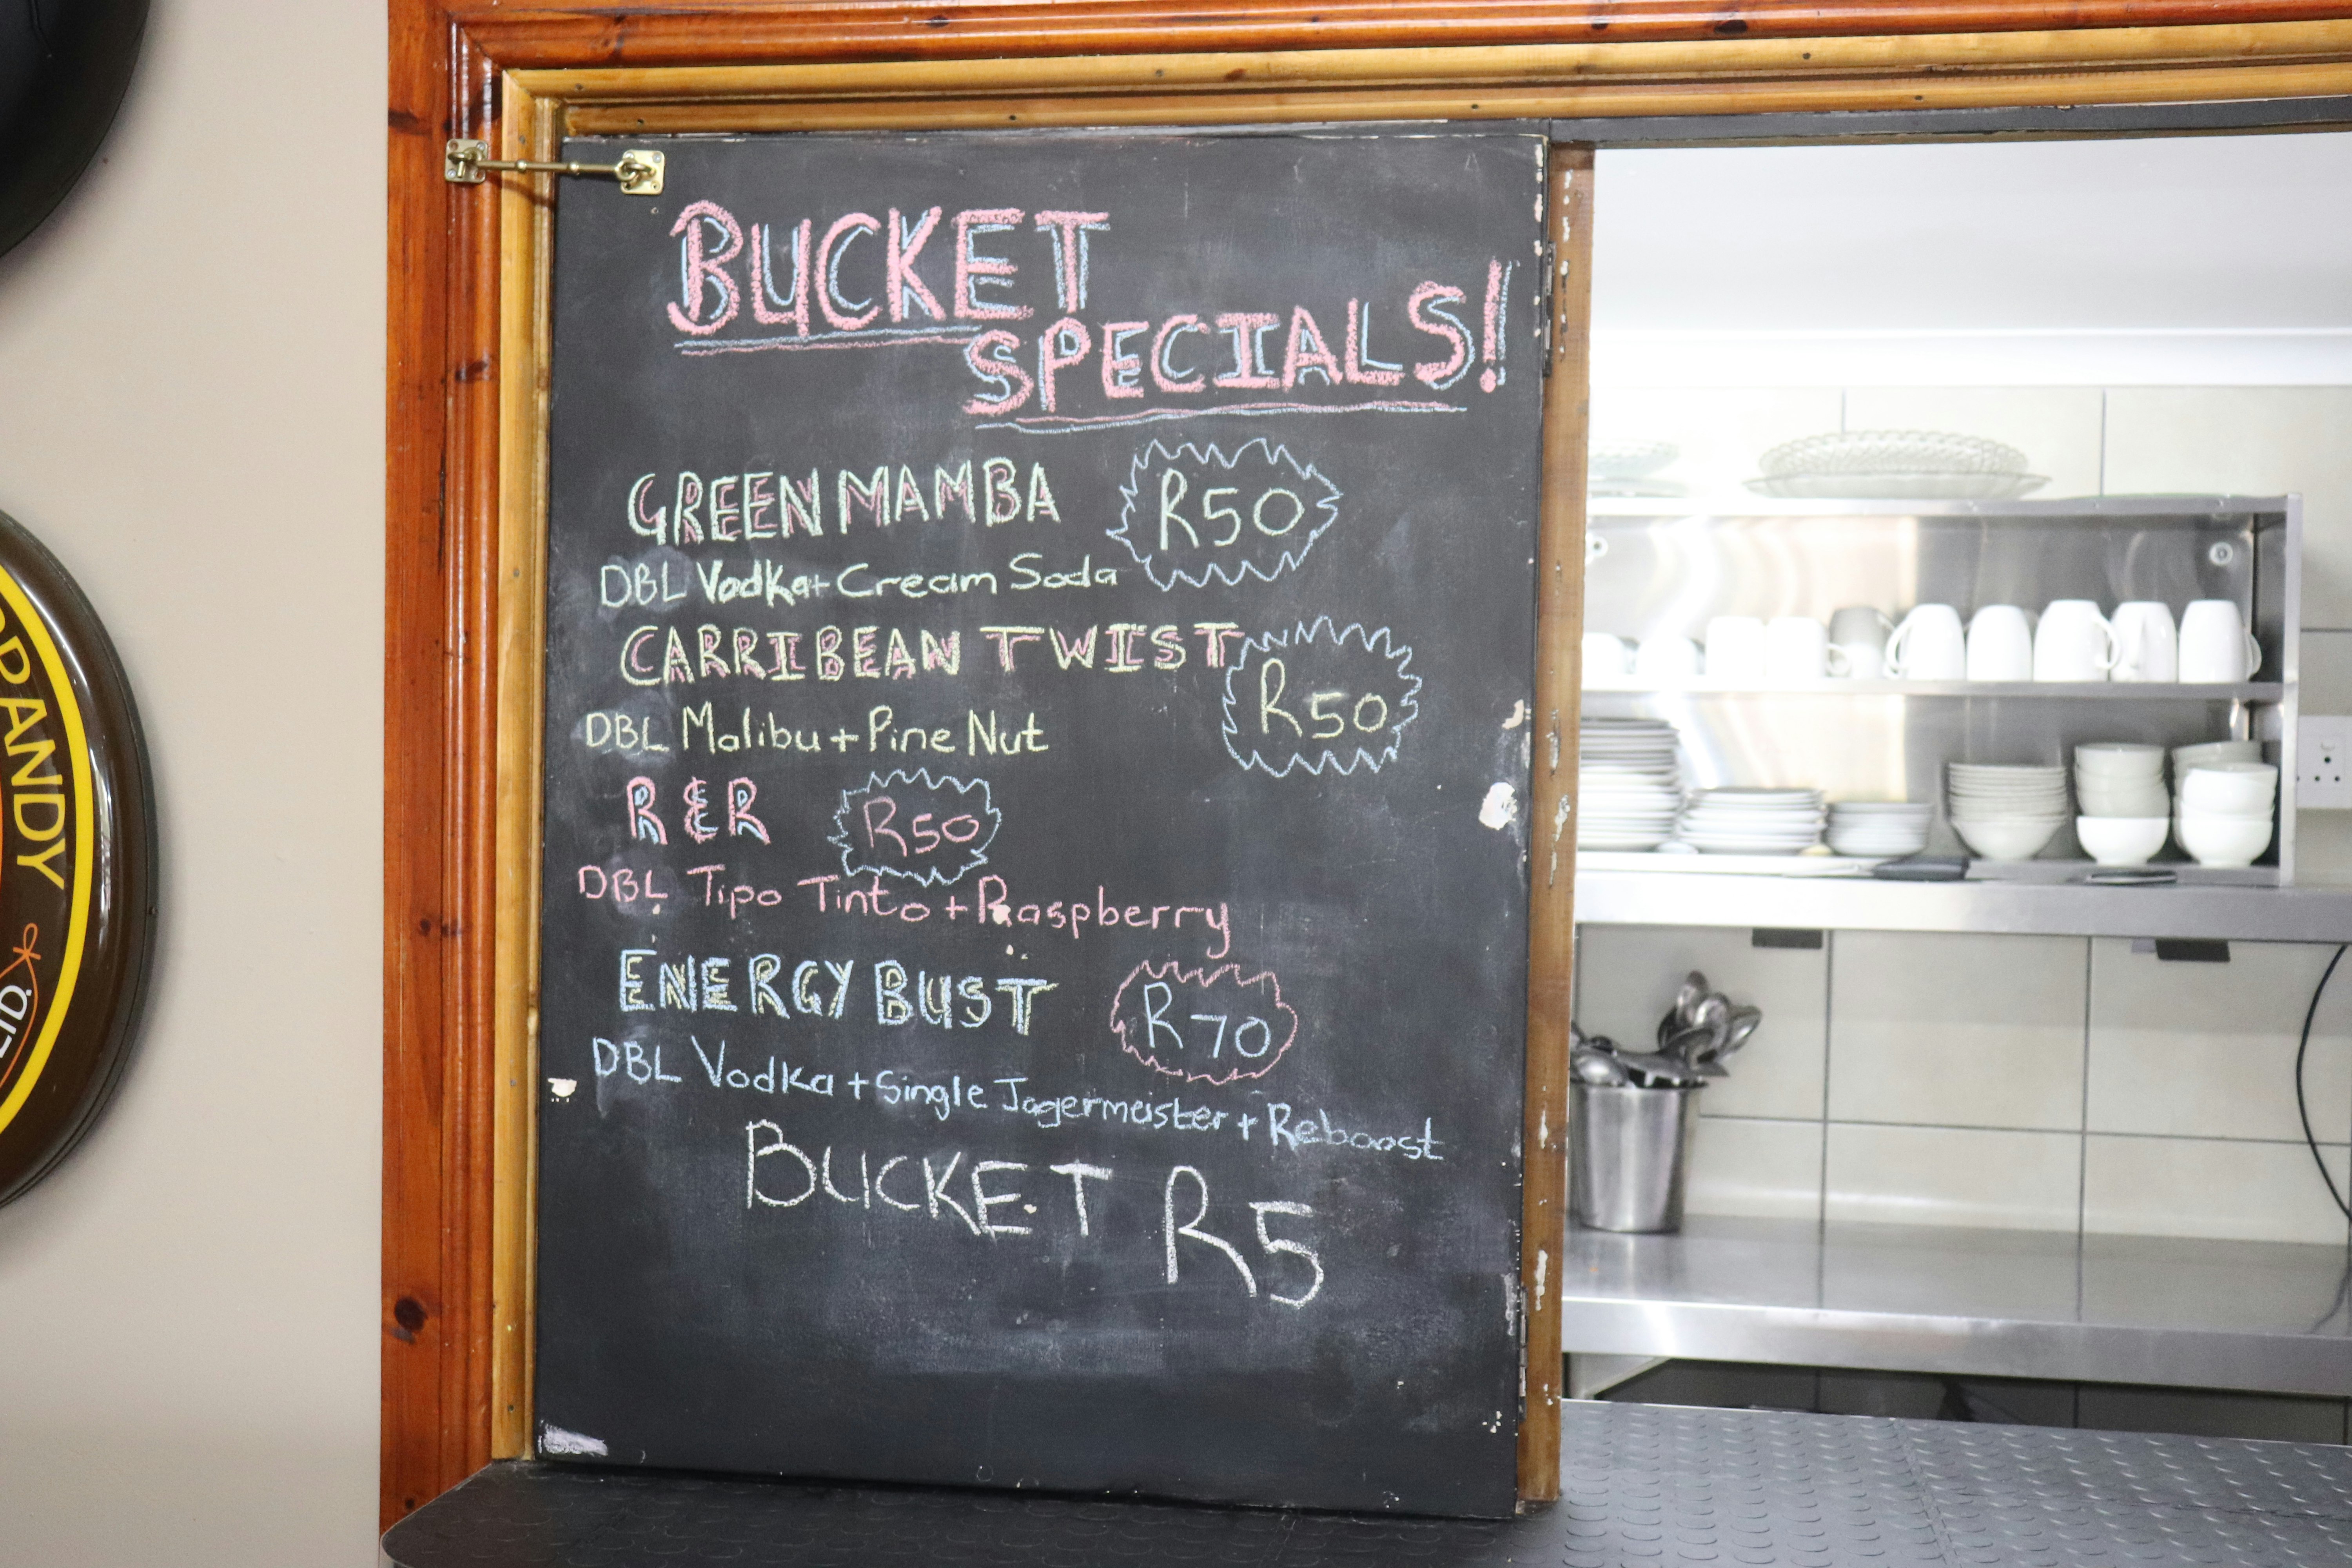 BUCKET
SPECIALS!
GREEN MAMBA R50
DBL Vodka+ Cream Soda
CARRIBEAN TWIST
R50
DBL Malibu + Pine Nut
R & R R50
DBL Tipo Tinto + Raspberry
ENERGY BUST R70
DBL Vodka + Single Jagermeister + Reboost
BUCKET R5